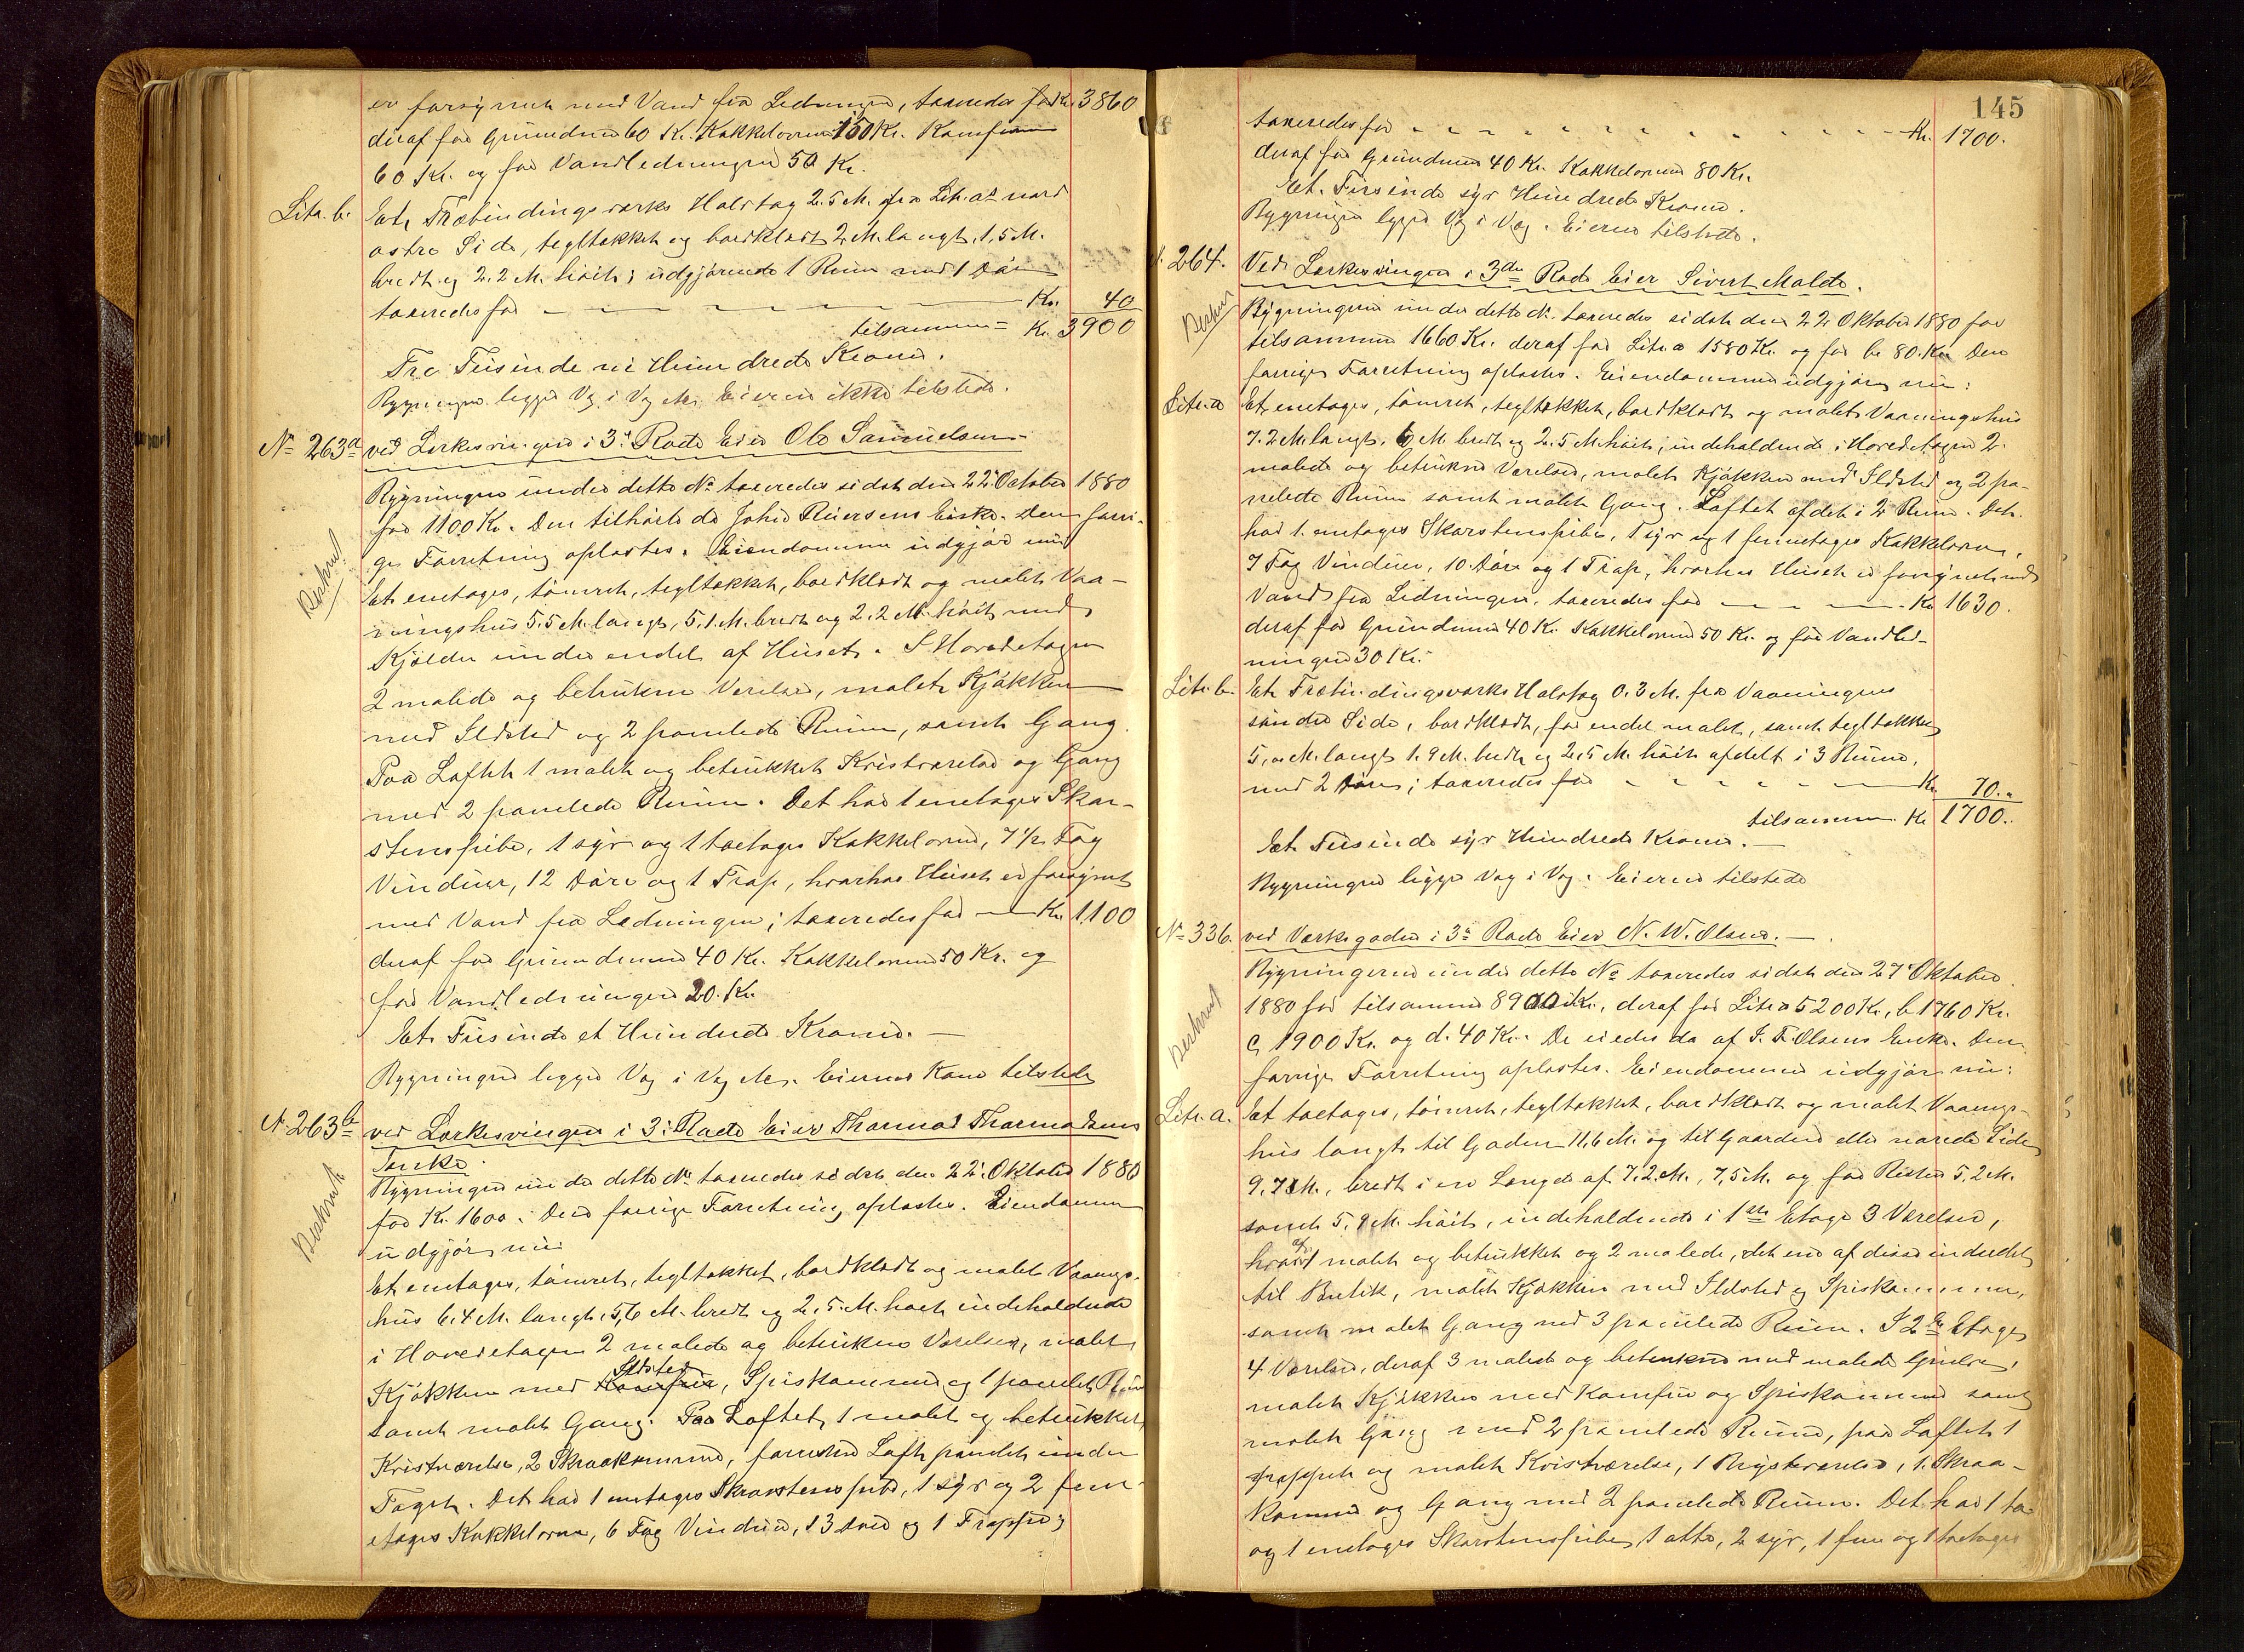 er forsynet med Vand fra Ledningen, taxeredes for Kr. 3860
deraf for Grundmur 60 Kr. Kakkelovne 150 Kr. Komfurer
60 Kr. og for Vandledningen 50 Kr.
Litr. b. Et Træbindingsværks Halvtag 2.5 M. fra Litr. a's nord
østre Side, tegltækket og bordklædt 2 M. langt, 1,5 M.
bredt og 2.2 M. høit; udgjørende 1 Rum med 1 Dør
taxeredes for Kr. 40
tilsammen = Kr. 3900
Tre Tusinde ni Hundrede Kroner.
Bygningen ligger Væg i Væg etc. Eieren ikke tilstede.
No 263a ved Lerkesvingen i 3' Rode Eier Ole Samuelsen
Bygningen under dette No taxeredes sidst den 22' October 1880
for 1100 Kr. Den tilhørte da John Reiersens Enke. Den forri-
ge Forretning oplæstes. Eiendommen udgjør nu
Beskrevet
Et enetages, tømret, tegltækket, bordklædt og malet Vaa-
ningshus 5.5 M. langt, 5.1 M. bredt og 2.2 M. høit med
Kjælder under endel af Huset. I Hovedetagen
2 malede og betrukne Værelser, malet Kjøkken
med Ildsted og 2 panelede Rum, samt Gang.
Paa Loftet 1 malet og betrukket Kvistværelse og Gang
med 2 panelede Rum. Det har 1 enetages Skor-
stenspibe, 1 syv og 1 toetages Kakkelovne, 7 1/2 Fag
Vinduer, 12 Døre og 1 Trap, hvorhos Huset er forsynet
med Vand fra Ledningen; taxeredes for Kr. 1100
deraf for Grundmur 40 Kr. Kakkelovne 50 Kr. og
for Vandledningen 20. Kr.
Et Tusinde et Hundrede Kroner.
Bygningen ligger Væg i Væg etc. Eierens Kone tilstede
No. 263b ved Lerkesvingen i 3' Rode Eier Thormod Thormodsens
Enke.
Bygningen under dette No taxeredes sidst den 22' Oktober 1880
for Kr. 1600. Den forrige Forretning oplæstes. Eiendommen
udgjør nu:
Beskrevet
Et enetages, tømret, tegltækket, bordklædt og malet Vaanings-
hus 6.4 M. langt, 5,6 M. bredt og 2.5 M. høit indeholdende
i Hovedetagen 2 malede og betrukne Værelser, malet
Kjøkken med Komfur Ildsted, Spiskammer og 1 panelet Rum
samt malet Gang. Paa Loftet 1 malet og betrukket
Kvistværelse, 2 Skraakammer, forresten Loft panelet under
Taget. Det har 1 enetages Skorstenspibe, 1 syv og 2 fem-
etages Kakkelovne, 6 Fag Vinduer, 13 Døre og 1 Trappe;
145
taxeredes for Kr. 1700.
deraf for Grundmur 40 Kr. Kakkelovne 80 Kr.
Et Tusinde syv Hundrede Kroner.
Bygningen ligger Væg i Væg. Eieren tilstede.
264. Ved Lerkesvingen i 3die Rode Eier Sivert Malde.
Beskrev
Bygningerne under dette No. taxeredes sidst den 22 Oktober 1880 for
tilsammen 1660 Kr. deraf for Litr. a 1580 Kr. og for b. 80. Kr. Den
forrige Forretning oplæstes. Eiendommen udgjør nu:
Litr. a Et enetages, tømret, tegltækket, bordklædt og malet Vaaningshus
7.2 M. langt, 6 M. bredt og 2.5 M. høit; indeholdende i Hovedetagen 2
malede og betrukne Værelser, malet Kjøkken med Ildsted og 2 pa-
nelede Rum samt malet Gang. Loftet afdelt i 2 Rum. Det
har 1 enetages Skorstenspibe, 1 syv og 1 femetages Kakkelovn,
7 Fag Vinduer, 10 Døre og 1 Trap, hvorhos Huset er forsynet med
Vand fra Ledningen, taxeredes for Kr. 1630.
deraf for Grundmur 40 Kr. Kakkelovne 50 Kr. og for Vandled-
ningen 30 Kr.
Litr. b. Et Træbindingsværks Halvtag 0.3 M. fra Vaaningens
søndre Side, bordklædt, for endel malet, samt tegltækket
langt 1.9 M. bredt og 2.5 M. høit afdelt i 3 Rum,
med 2 Døre; taxeredes for Kr. 70.
tilsammen Kr. 1700.
Et Tusinde syv Hundrede Kroner.
Bygningen ligger Væg i Væg. Eieren tilstede
No 336. ved Værksgaden i 3' Rode Eier N. W. Olsen.
Bygningerne under dette No taxeredes sidst den 27' Oktober
1880 for tilsammen 8900 Kr., deraf for Litr. a 5200 Kr., b 1760 Kr.
c, 1900 Kr. og d. 40 Kr. De eiedes da af S. T. Olsens Enke. Den
Beskrevet
forrige Forretning oplæstes. Eiendommen udgjør nu:
Litr. a. Et toetages, tømret, tegltækket, bordklædt og malet Vaanings-
hus langt til Gaden 11,6 M. og til Gaarden eller nordre Side
9,7 M., bredt i en Længde af 7.2. M., 7,5 M. og for Resten 5,2 M.
samt 5,9 M. høit, indeholdende i 1ste Etage 3 Værelser,
hvoraf 1 malet og betrukket og 2 malede, det ene af disse indredet
til Butik, malet Kjøkken med Ildsted og Spiskammer,
samt malet Gang med 3 panelede Rum. I 2den Etage
4 Værelser, deraf 3 malede og betrukne med malede
malet Kjøkken med Komfur og Spiskammer samt
malet Gang med 2 panelede Rum, paa Loftet 1
og malet Kvistværelse, 1 1 Skraa-
kammer og Gang med 2 panelede Rum. Det har 1 to
og 1 enetages Skorstenspibe, 1 otte, 2 syv, 1 fem og 1 toetages